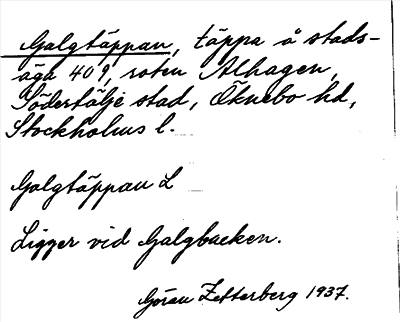 Galgtäppan, täppa å stads-
äga 409, roten Alhagen,
Södertälje stad, Öknebo hd,
Stockholms l.
Galgtäppan L
Ligger vid Galgbacken.
Göran Zetterberg 1937.